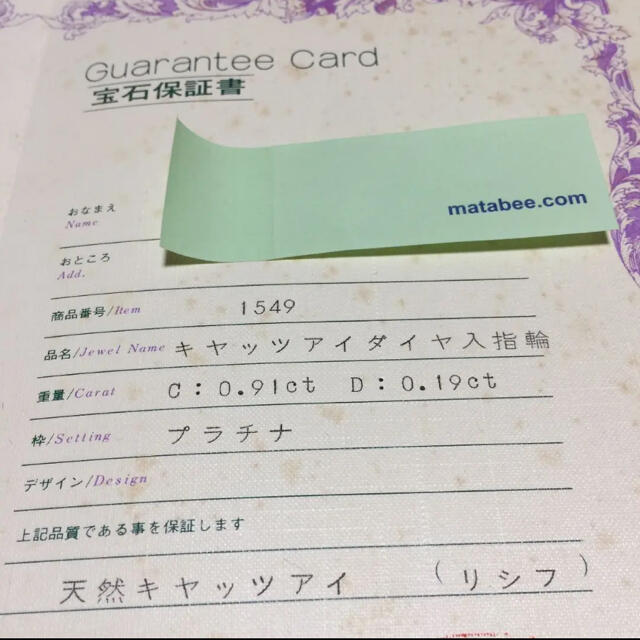 Guarantee Card
宝石保証書
matabee.com
おなまえ
Name
おところ
Add.
商品番号/Item 1549
品名/Jewel Name キヤッツアイダイヤ入指輪
重量/Carat C:0.91ct D:0.19ct
枠/Setting プラチナ
デザイン/Design
上記品質である事を保証します
天然キヤッツアイ (リシフ)